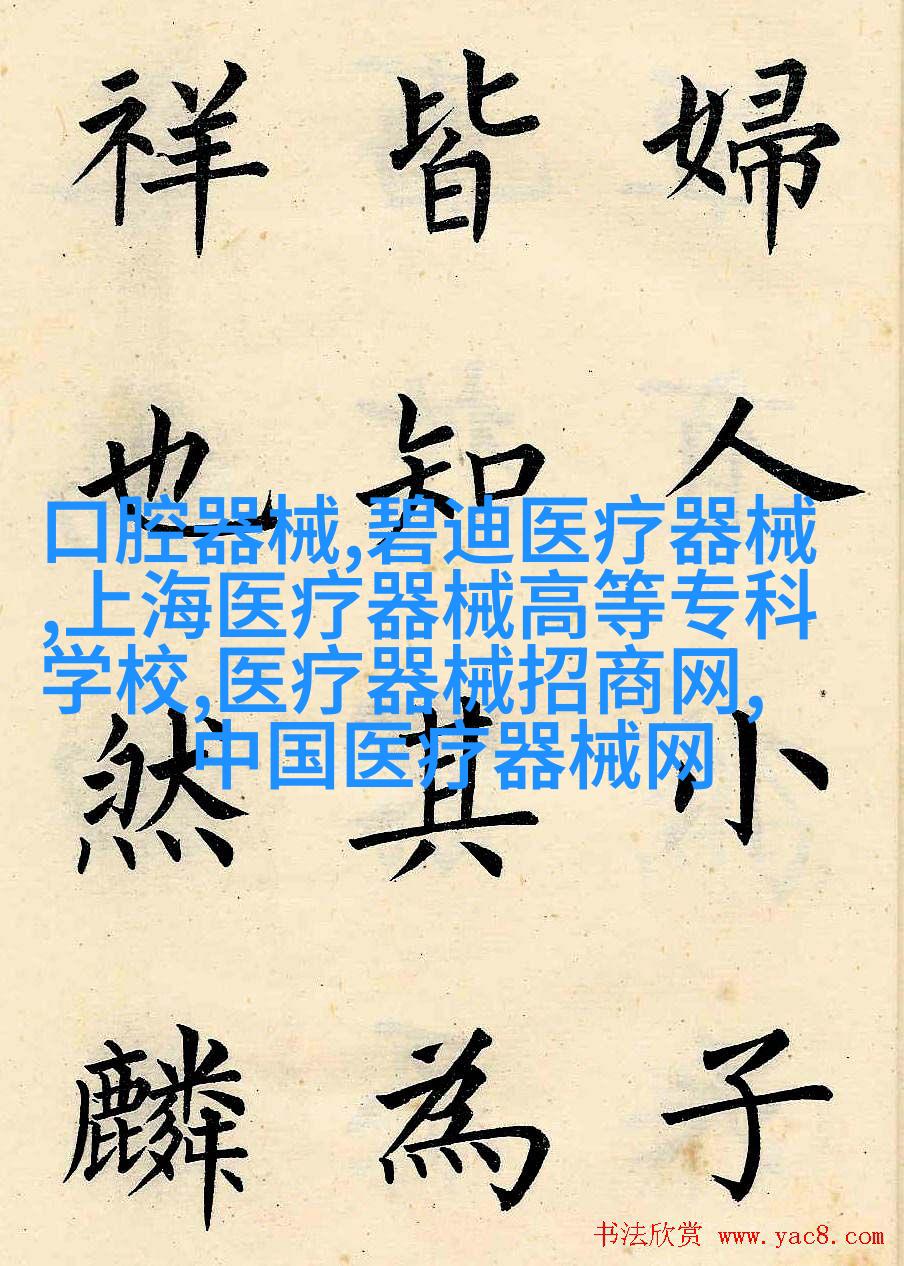 婦人小子
皆知其為
祥也然麟
口腔器械,碧迪医疗器械
,上海医疗器械高等专科
学校,医疗器械招商网,
中国医疗器械网
书法欣赏 www.yac8.com